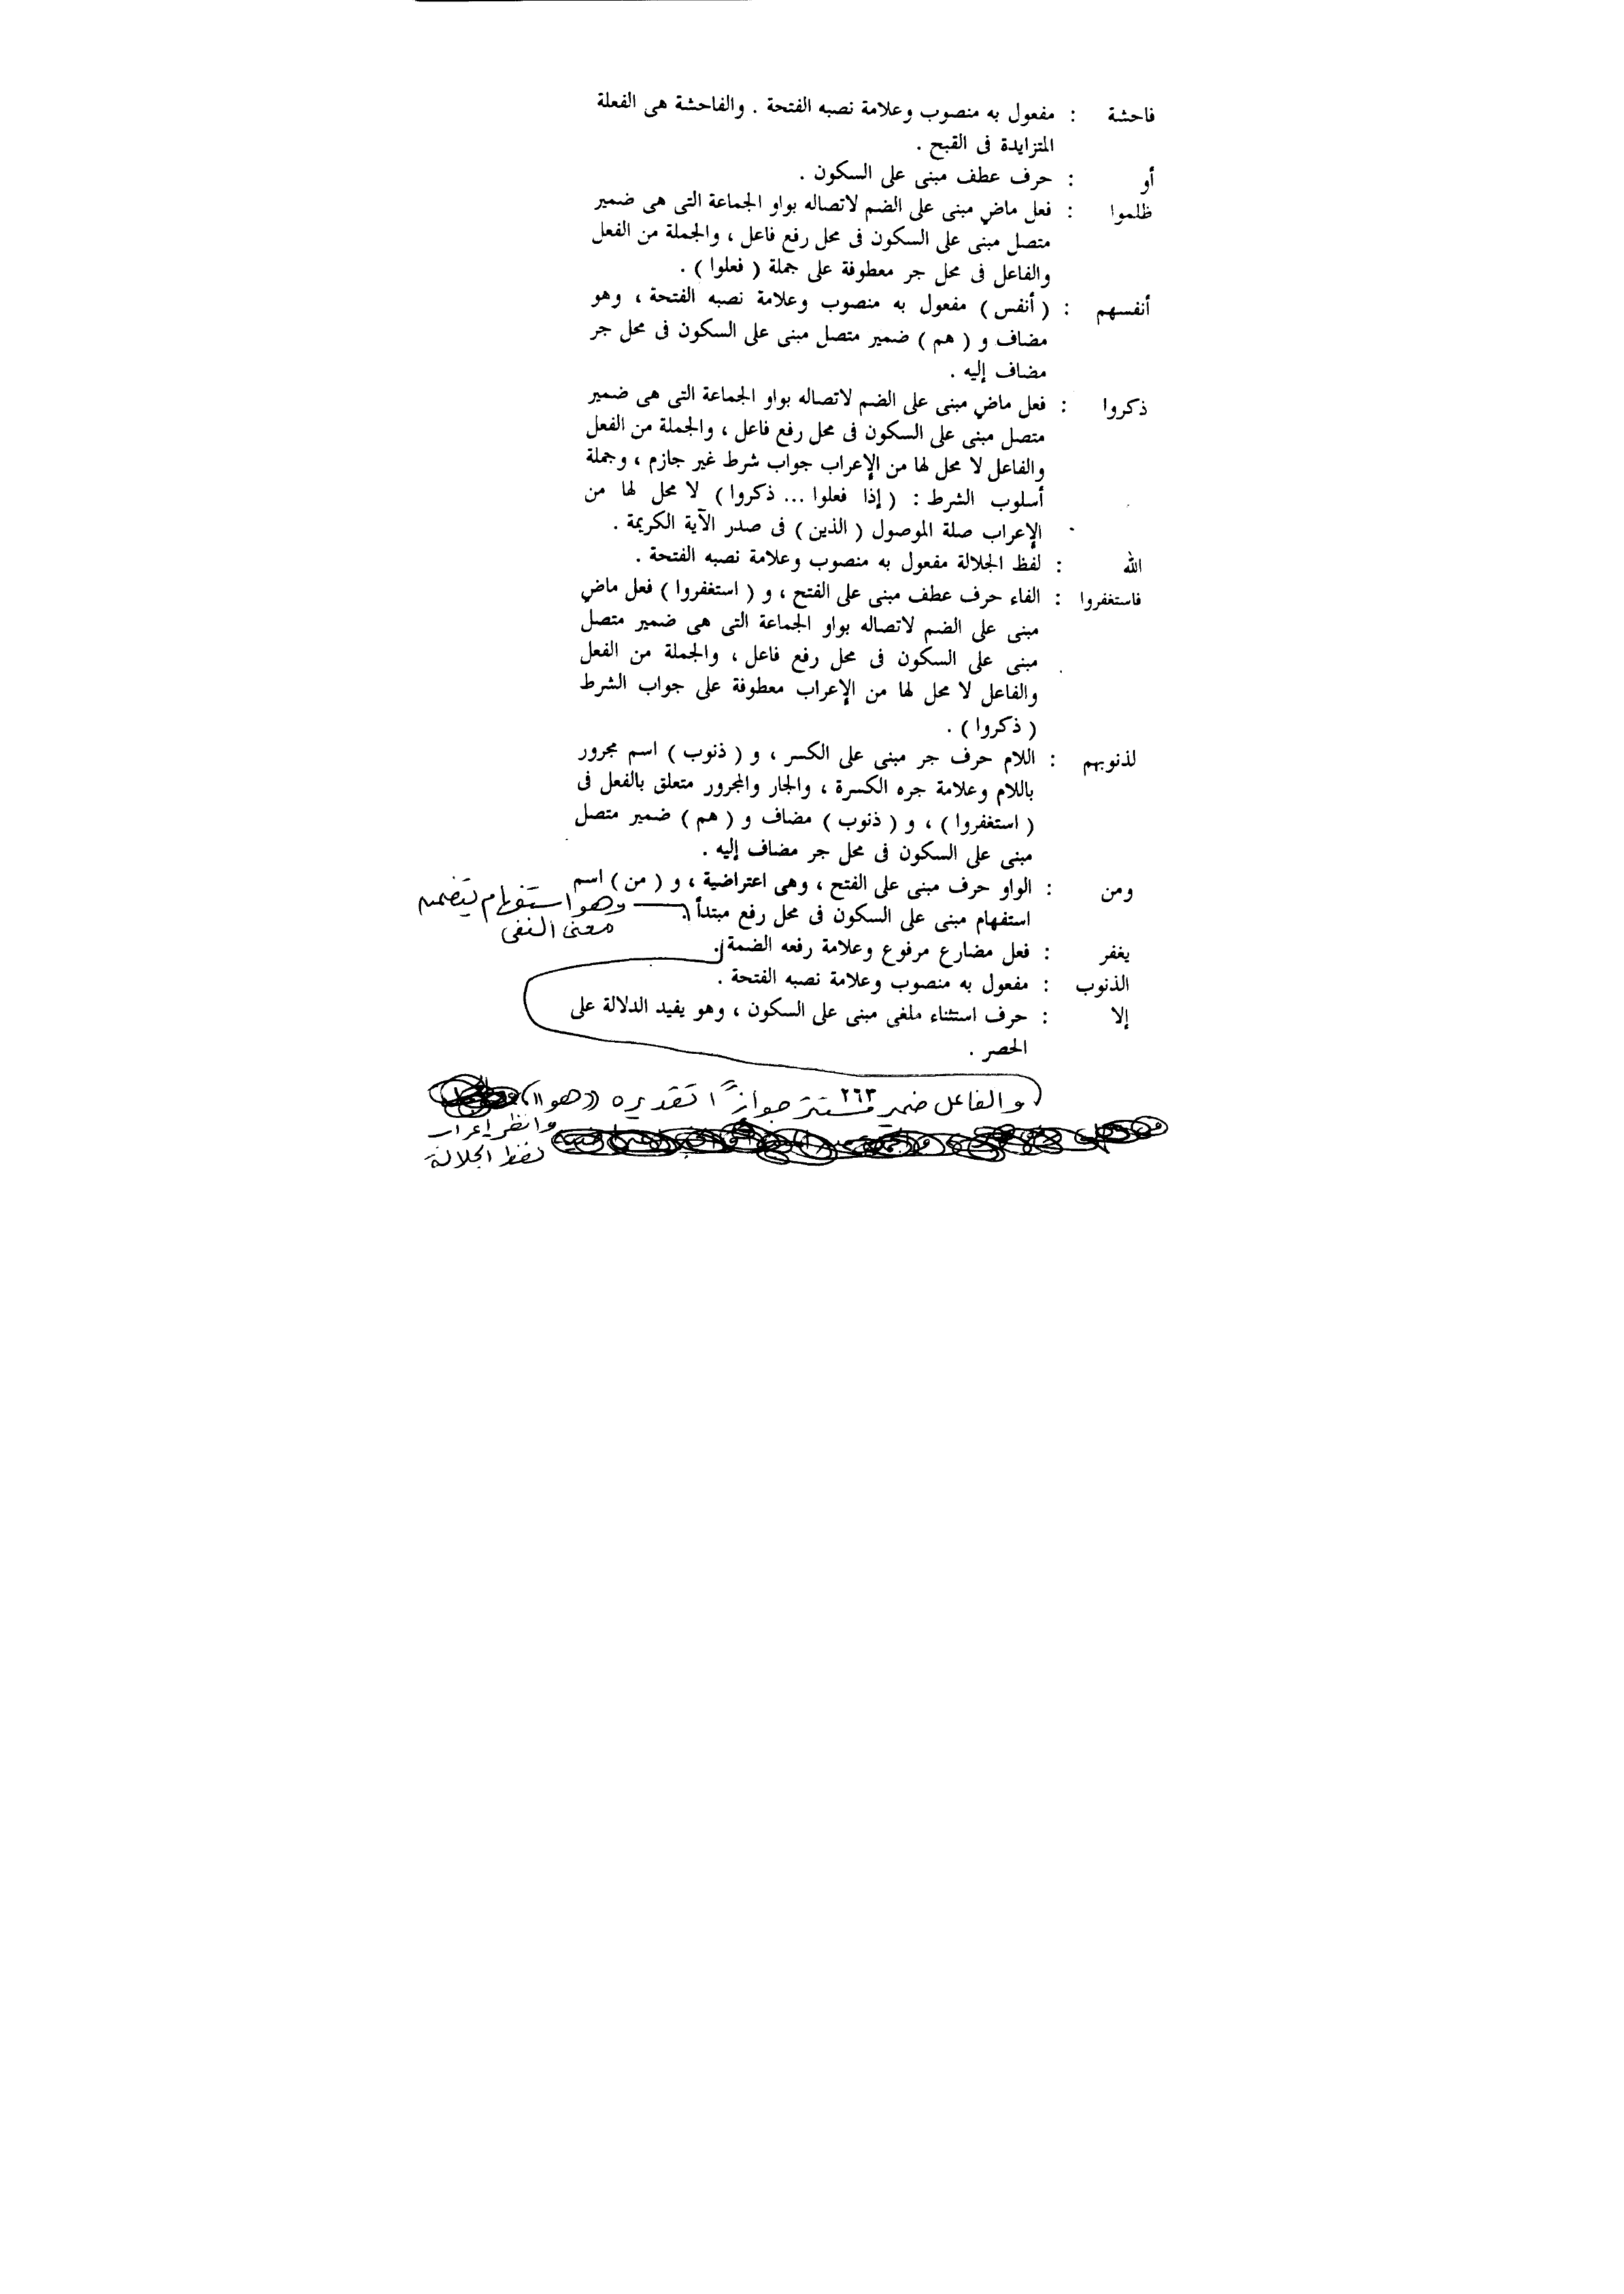 فاحشة : مفعول به منصوب وعلامة نصبه الفتحة . والفاحشة هى الفعلة
المتزايدة فى القبح .
أو : حرف عطف مبنى على السكون .
ظلموا : فعل ماضٍ مبنى على الضم لاتصاله بواو الجماعة التى هى ضمير
متصل مبنى على السكون فى محل رفع فاعل ، والجملة من الفعل
والفاعل فى محل جر معطوفة على جملة ( فعلوا ) .
أنفسهم : ( أنفس ) مفعول به منصوب وعلامة نصبه الفتحة ، وهو
مضاف و ( هم ) ضمير متصل مبنى على السكون فى محل جر
مضاف إليه .
ذكروا : فعل ماضٍ مبنى على الضم لاتصاله بواو الجماعة التى هى ضمير
متصل مبنى على السكون فى محل رفع فاعل ، والجملة من الفعل
والفاعل لا محل لها من الإعراب جواب شرط غير جازم ، وجملة
أسلوب الشرط : ( إذا فعلوا ... ذكروا ) لا محل لها من
الإعراب صلة الموصول ( الذين ) فى صدر الآية الكريمة .
الله : لفظ الجلالة مفعول به منصوب وعلامة نصبه الفتحة .
فاستغفروا : الفاء حرف عطف مبنى على الفتح ، و ( استغفروا ) فعل ماضٍ
مبنى على الضم لاتصاله بواو الجماعة التى هى ضمير متصل
مبنى على السكون فى محل رفع فاعل ، والجملة من الفعل
والفاعل لا محل لها من الإعراب معطوفة على جواب الشرط
( ذكروا ) .
لذنوبهم : اللام حرف جر مبنى على الكسر ، و ( ذنوب ) اسم مجرور
باللام وعلامة جره الكسرة ، والجار والمجرور متعلق بالفعل فى
( استغفروا ) ، و ( ذنوب ) مضاف و ( هم ) ضمير متصل
مبنى على السكون فى محل جر مضاف إليه .
ومن : الواو حرف مبنى على الفتح ، وهى اعتراضية ، و ( من ) اسم
استفهام مبنى على السكون فى محل رفع مبتدأ . وهو استفهام يتضمن
معنى النفى
يغفر : فعل مضارع مرفوع وعلامة رفعه الضمة .
الذنوب : مفعول به منصوب وعلامة نصبه الفتحة .
إلا : حرف استثناء ملغى مبنى على السكون ، وهو يفيد الدلالة على
الحصر .
٢٦٣
والفاعل ضمير مستتر جوازًا تقديره «هو»
وانظر إعراب
لفظ الجلالة